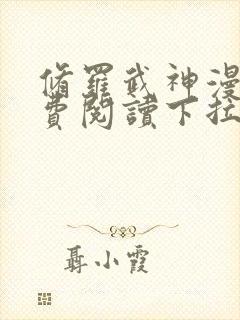 脩羅武神漫
費閱讀下拉
聶小霞